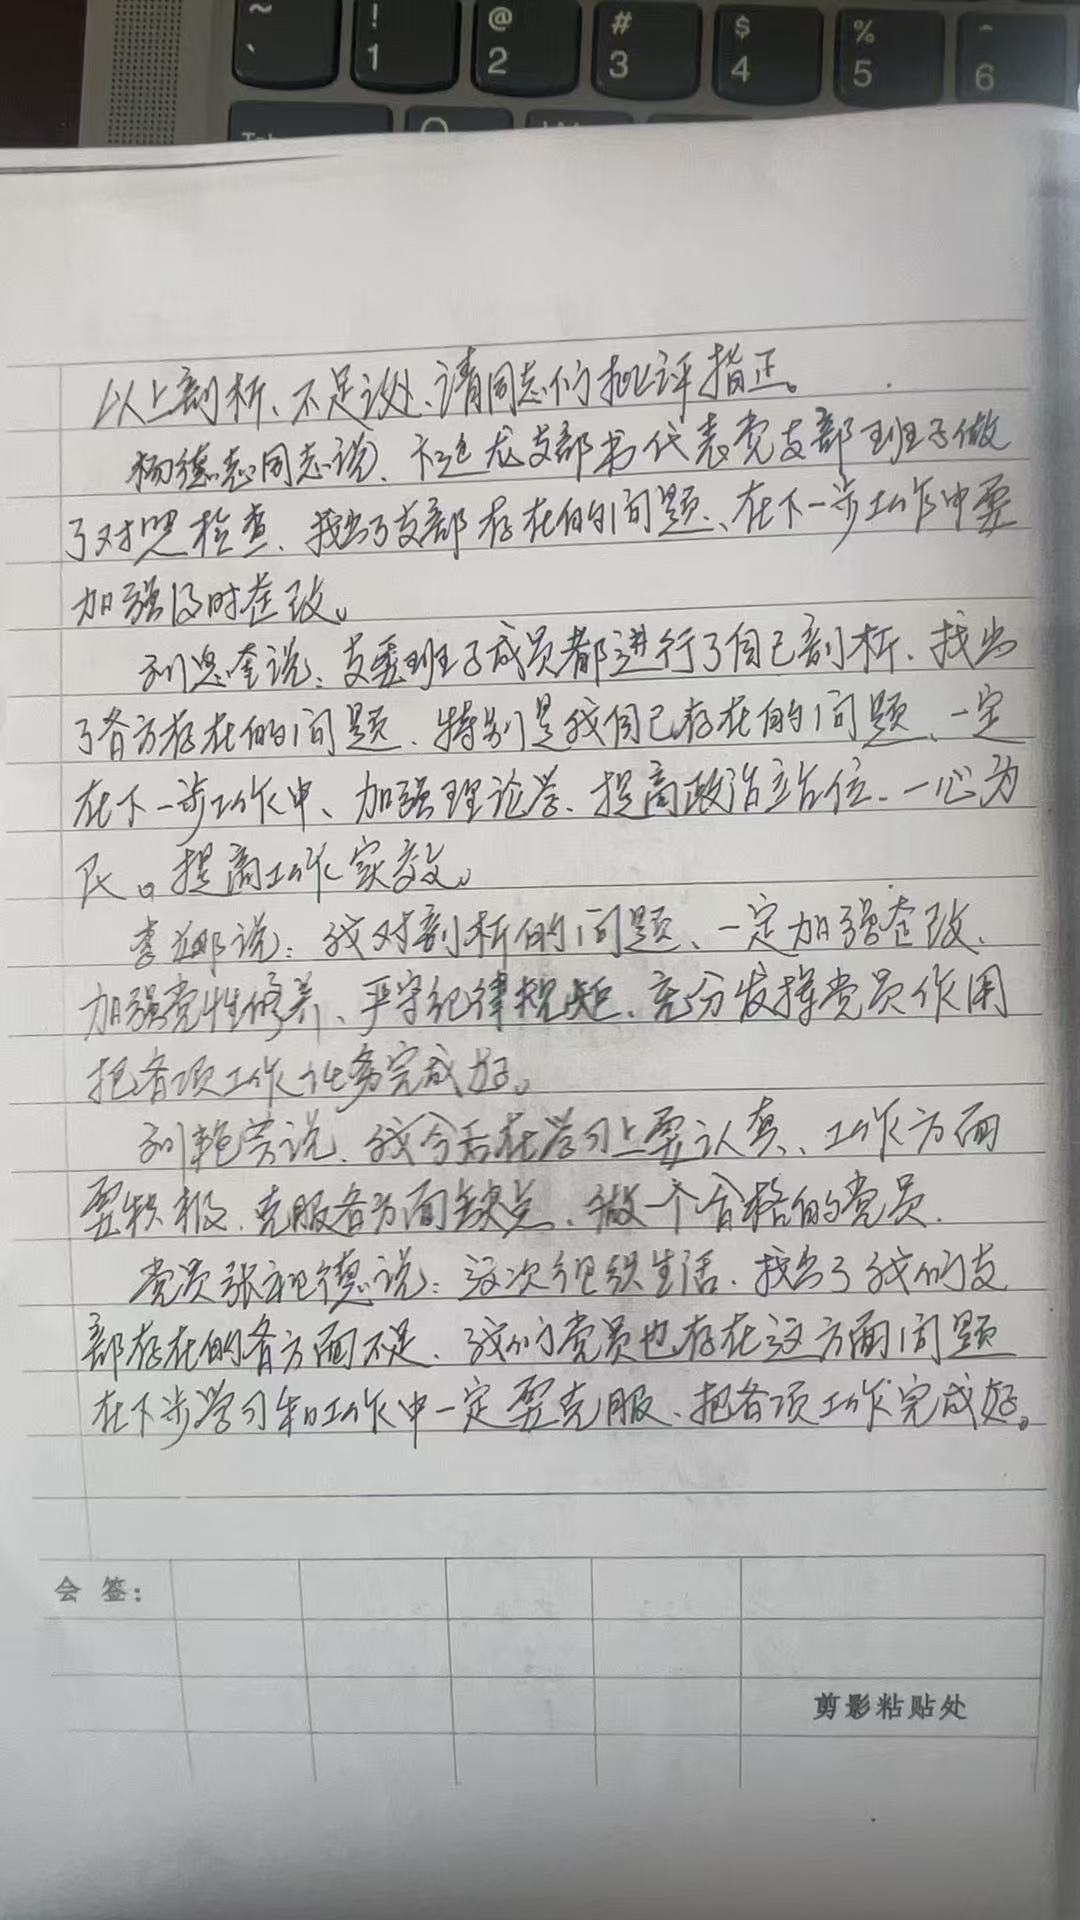 ~ ! @ # $ % ^
` 1 2 3 4 5 6
Tab Q W
以上剖析、不足之处、请同志们批评指正。
杨德志同志说、龙支部书代表党支部班子做
了对照检查、找出了支部存在的问题、在下一步工作中要
加强及时整改。
刘思奎说：支委班子成员都进行了自己剖析、找出
了各方存在的问题、特别是我自己存在的问题、一定
在下一步工作中、加强理论学、提高政治站位、一心为
民。提高工作实效。
李 说：我对剖析的问题、一定加强整改、
加强党性修养、严守纪律规矩、充分发挥党员作用
把各项工作任务完成好。
刘艳芳说、我今后在学习上要认真、工作方面
要积极、克服各方面缺点、做一个合格的党员.
党员张祖德说：这次组织生活、找出了我们支
部存在的各方面不足、我们党员也存在这方面问题
在下步学习和工作中一定要克服、把各项工作完成好。
会 签：
剪影粘贴处